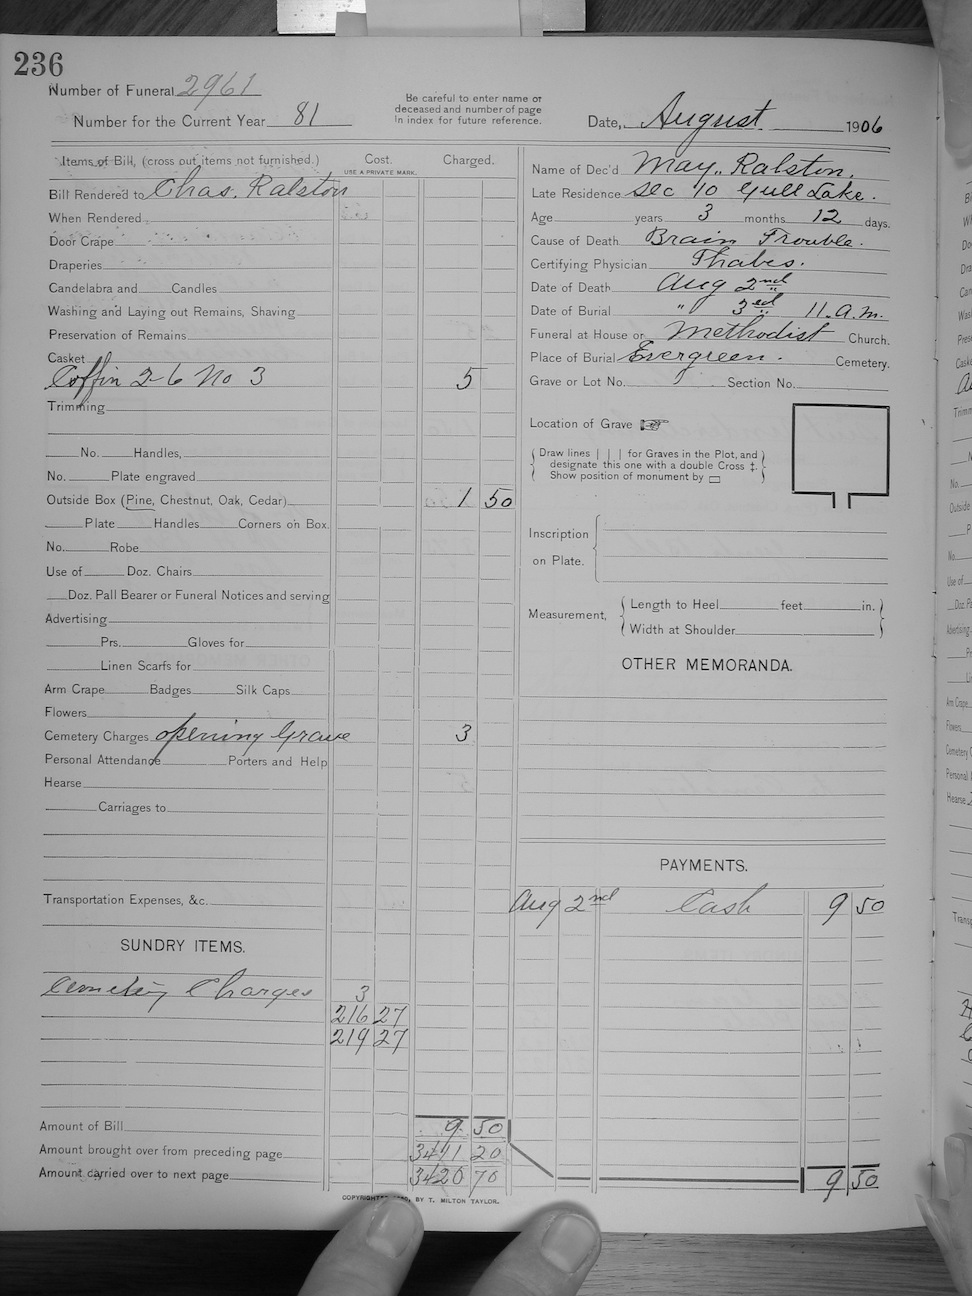 236
Number of Funeral 2961
Number for the Current Year 81
Be careful to enter name of
deceased and number of page
in index for future reference.
Date, August 1906
Items of Bill, (cross out items not furnished.) Cost. Charged.
USE A PRIVATE MARK.
Bill Rendered to Chas. Ralston
When Rendered
Door Crape
Draperies
Candelabra and Candles
Washing and Laying out Remains, Shaving
Preservation of Remains
Casket
Coffin 2-6 No 3 5
Trimming
No. Handles,
No. Plate engraved
Outside Box (Pine, Chestnut, Oak, Cedar) 1 50
Plate Handles Corners on Box.
No. Robe
Use of Doz. Chairs
Doz. Pall Bearer or Funeral Notices and serving
Advertising
Prs. Gloves for
Linen Scarfs for
Arm Crape Badges Silk Caps
Flowers
Cemetery Charges opening Grave 3
Personal Attendance Porters and Help
Hearse
Carriages to
Transportation Expenses, &c.
SUNDRY ITEMS.
Cemetery Charges 3
216 27
219 27
Amount of Bill 9 50
Amount brought over from preceding page 3411 20
Amount carried over to next page 3420 70
COPYRIGHTED BY T. MILTON TAYLOR.
Name of Dec'd May Ralston.
Late Residence Sec 10 Gull Lake.
Age years 3 months 12 days.
Cause of Death Brain Trouble.
Certifying Physician Thabes.
Date of Death Aug 2nd
Date of Burial " 3rd 11. a.m.
Funeral at House or Methodist Church.
Place of Burial Evergreen. Cemetery.
Grave or Lot No. Section No.
Location of Grave
Draw lines | | | for Graves in the Plot, and
designate this one with a double Cross ‡.
Show position of monument by ▭
Inscription
on Plate.
Measurement, Length to Heel feet in.
Width at Shoulder
OTHER MEMORANDA.
PAYMENTS.
Aug 2nd Cash 9 50
9 50